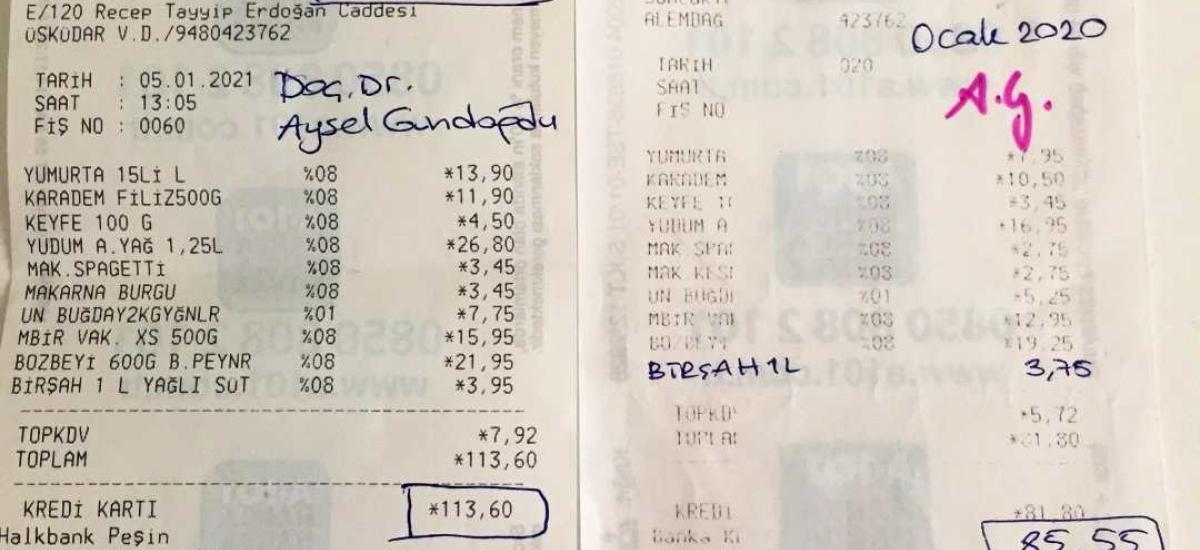 E/120 Recep Tayyip Erdoğan Caddesi
ÜSKÜDAR V.D./9480423762
TARİH : 05.01.2021
SAAT : 13:05
FİŞ NO : 0060
Doç. Dr.
Aysel Gündoğdu
YUMURTA 15Lİ L %08 *13,90
KARADEM FİLİZ500G %08 *11,90
KEYFE 100 G %08 *4,50
YUDUM A.YAĞ 1,25L %08 *26,80
MAK.SPAGETTİ %08 *3,45
MAKARNA BURGU %08 *3,45
UN BUĞDAY2KGYĞNLR %01 *7,75
MBİR VAK. XS 500G %08 *15,95
BOZBEYİ 600G B.PEYNR %08 *21,95
BİRŞAH 1 L YAĞLI SÜT %08 *3,95
TOPKDV *7,92
TOPLAM *113,60
KREDİ KARTI *113,60
Halkbank Peşin
ALEMDAG 423762
Ocak 2020
TARIH 020
SAAT
FİŞ NO
A.G.
YUMURTA %08 *7,95
KARADEM %08 *10,50
KEYFE 1 %08 *3,45
YUDUM A %08 *16,95
MAK SPA %08 *2,75
MAK KES %08 *2,75
UN BUĞD %01 *5,25
MBİR VA %08 *12,95
BOZBEYİ %08 *19,25
BİRŞAH 1L 3,75
TOPKD *5,72
TOPLA *81,80
KREDİ *81,80
Banka K
85,55